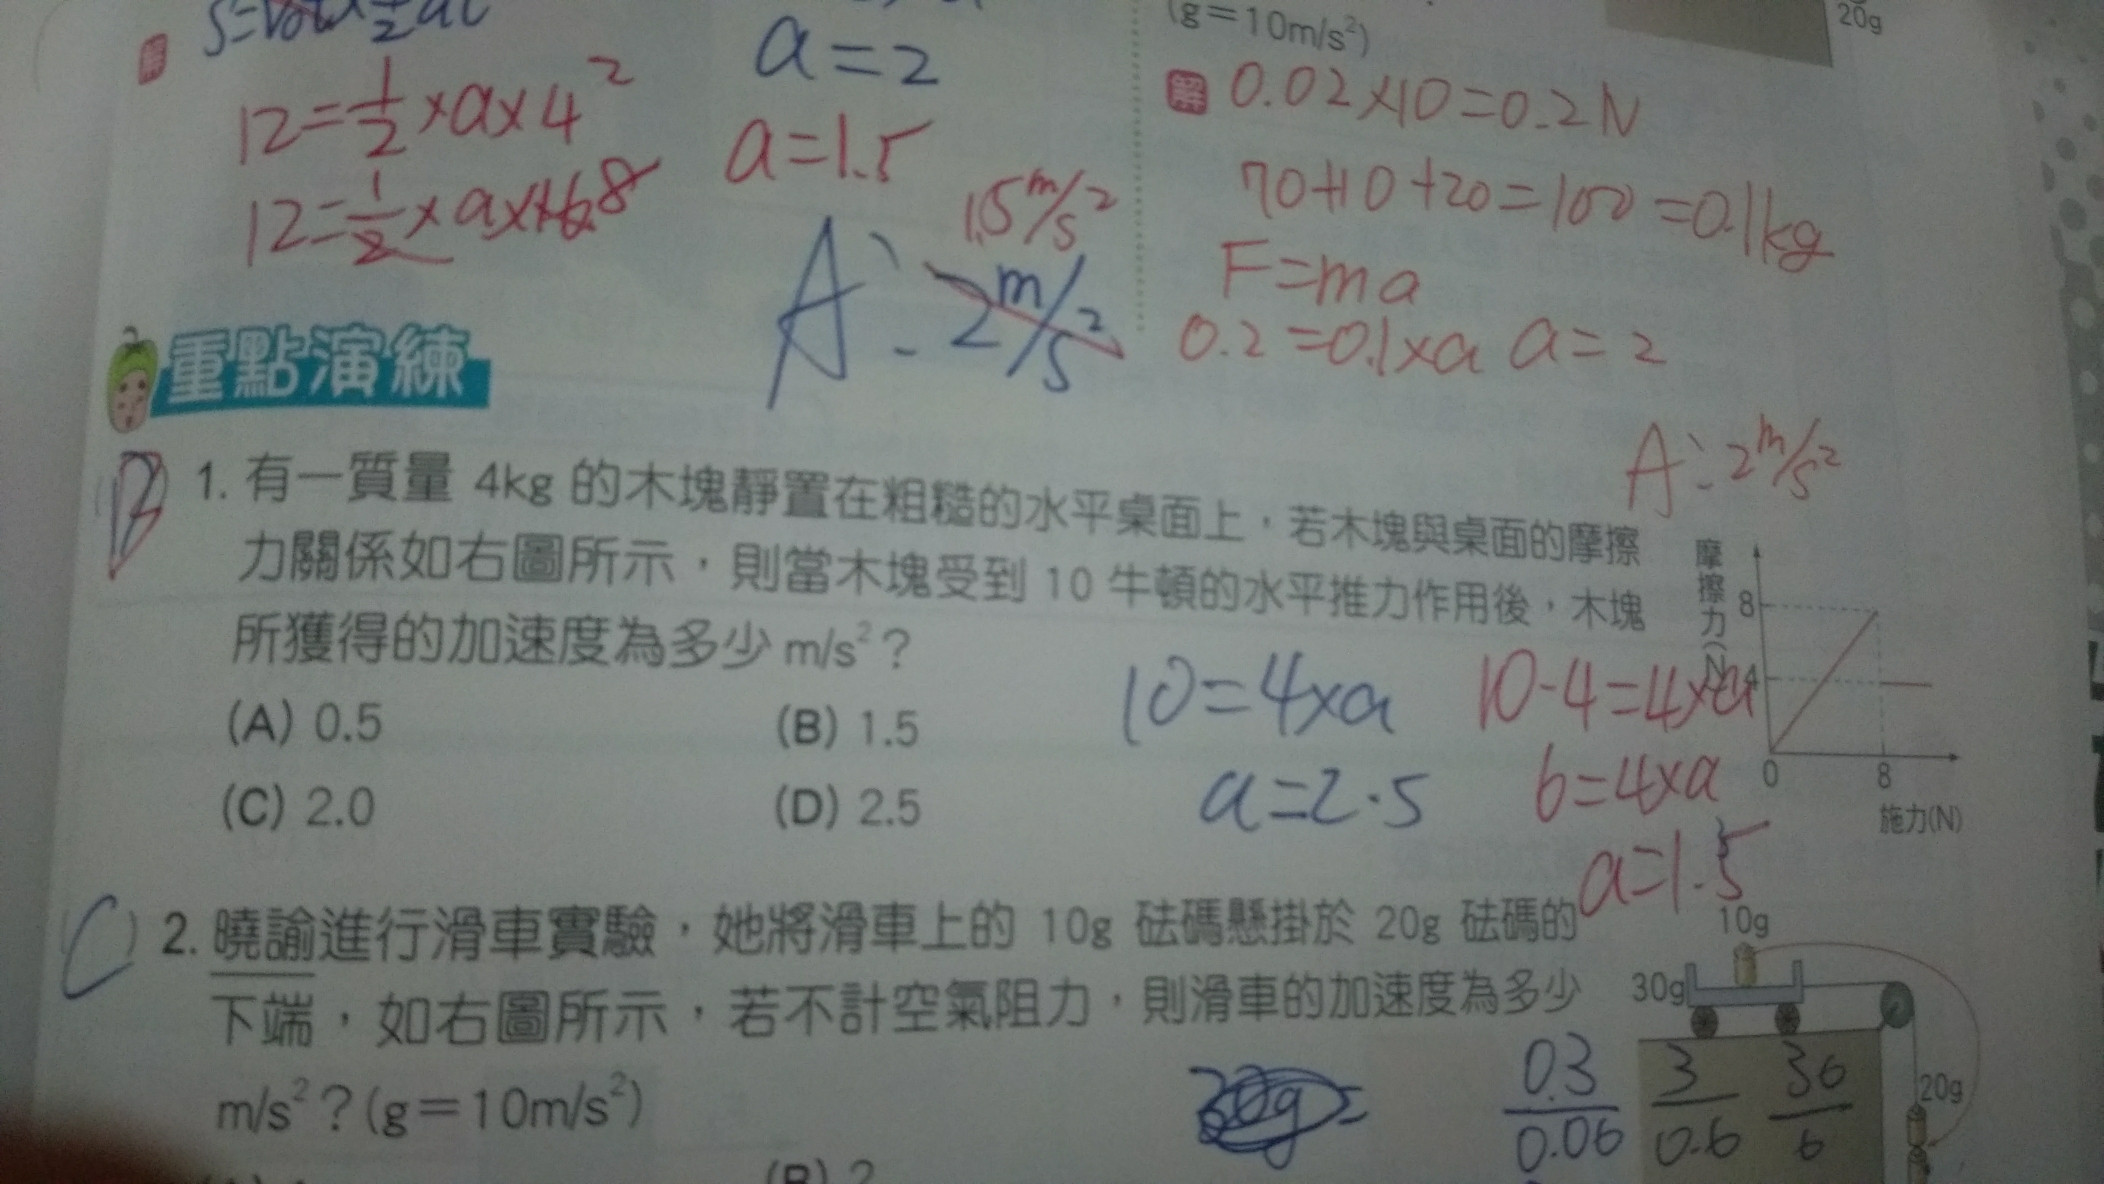 12=1/2×a×4²
12=1/2×a×16 8
a=2
a=1.5
1.5 m/s²
A: 2 m/s²
(g=10m/s²)
20g
解 0.02×10=0.2N
70+10+20=100=0.1kg
F=ma
0.2=0.1×a a=2
A: 2 m/s²
重點演練
B 1. 有一質量 4kg 的木塊靜置在粗糙的水平桌面上，若木塊與桌面的摩擦
力關係如右圖所示，則當木塊受到 10 牛頓的水平推力作用後，木塊
所獲得的加速度為多少 m/s²？
(A) 0.5 (B) 1.5
(C) 2.0 (D) 2.5
10=4×a
a=2.5
10-4=4×a
6=4×a
a=1.5
摩擦力(N)
8
4
0 8
施力(N)
C 2. 曉諭進行滑車實驗，她將滑車上的 10g 砝碼懸掛於 20g 砝碼的
下端，如右圖所示，若不計空氣阻力，則滑車的加速度為多少
m/s²？(g＝10m/s²)
10g
30g
20g
0.3/0.06 3/0.6 30/6
(B) 2